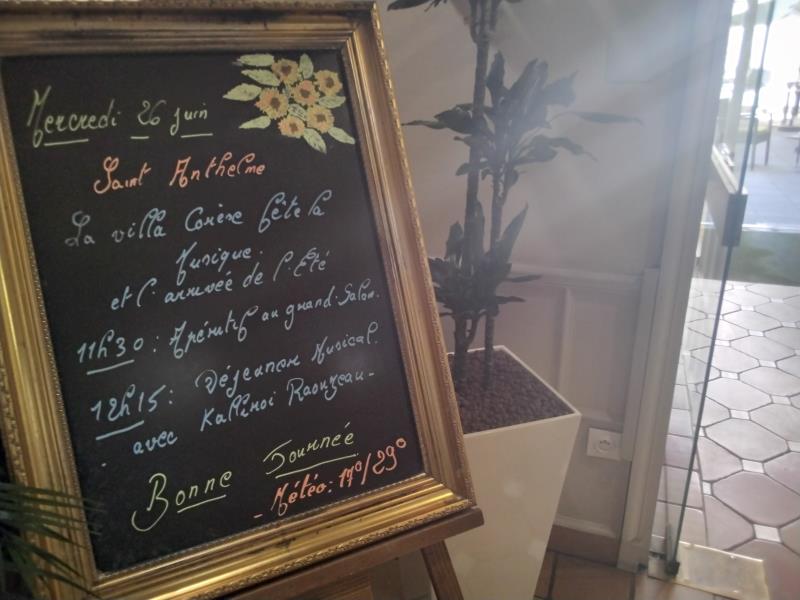 Mercredi 26 juin
Saint Anthelme
La villa fête la
Musique.
et l'arrivée de l'Eté
11h30 : Apéritif au grand Salon.
12h15 : Déjeuner Musical.
avec Raouzeau -
Bonne Journée
- Météo : 17°/29°